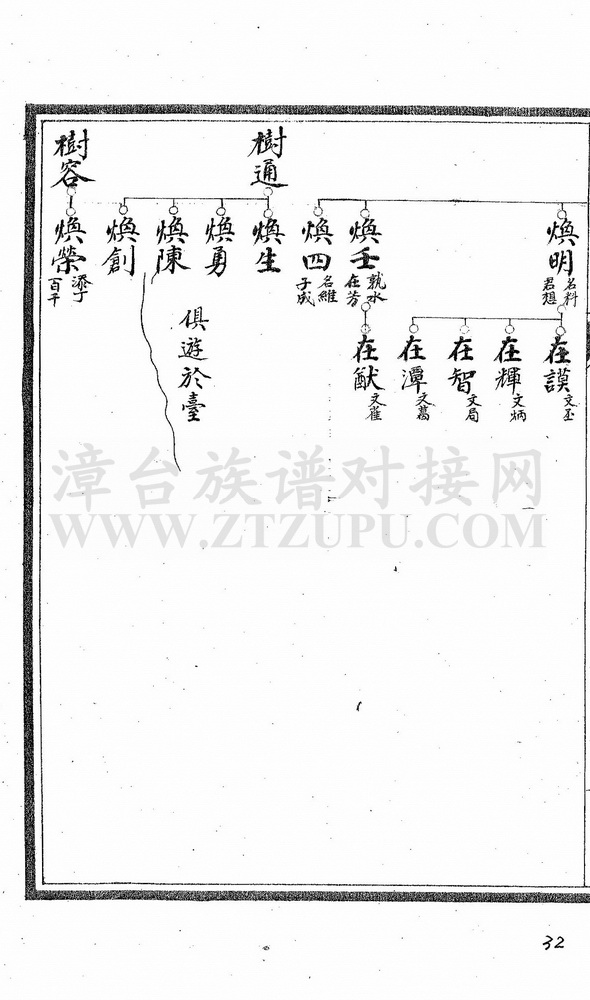 樹通
樹容
煥明 名料 君想
煥壬 執水 在芳
煥四 名維 子成
煥生
煥勇
煥陳
煥創
煥榮 添丁 百千
俱遊於臺
在謨 文丕
在輝 文炳
在智 文局
在潭 文葛
在猷 文雀
漳台族谱对接网
WWW.ZTZUPU.COM
32